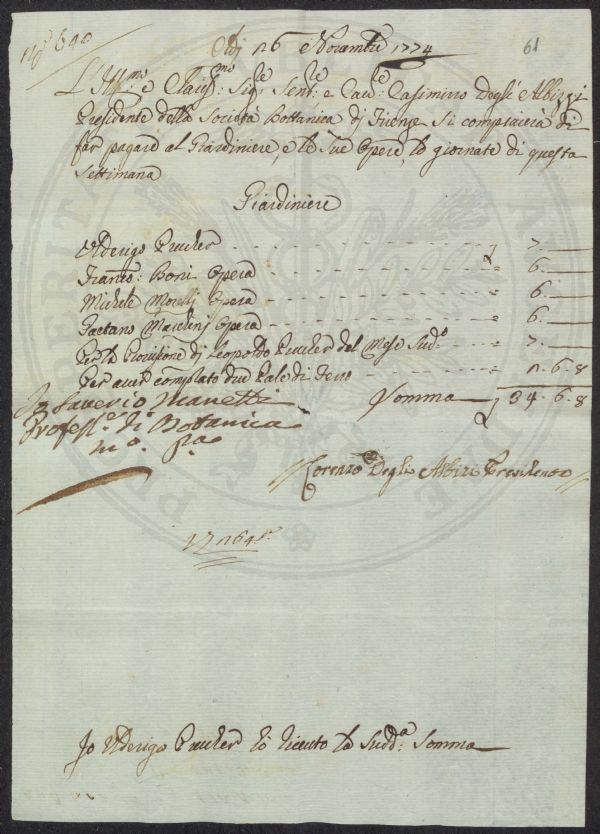 Adj 26 Novembre 1774
61
L'Ill.mo e Clariss.mo Sig.re Sen.re e Cav.re Casimirro Degli Albizzi
Presidente della Società Bottanica dj Firenze si compiacera di
far pagare al Giardiniere, e le Sue Opere, le giornate di questa
Settimana
Giardiniere
Ulderigo Prucher 7.
Franco: Boni Opera 6.
Michele Morelli Opera 6.
Gaetano Marchinj Opera 6.
Per la Provisione dj Leopoldo Prucher del Mese Sud.o 7.
Per aver complato due Pale di ferro 2.6.8
Somma 34.6.8
Io Saverio Manetti
Profess.e di Botanica
m.o p.a
Lorenzo Degli Albizi Presidente
Io Ulderigo Prucher ò riceuto la Sudd.a Somma